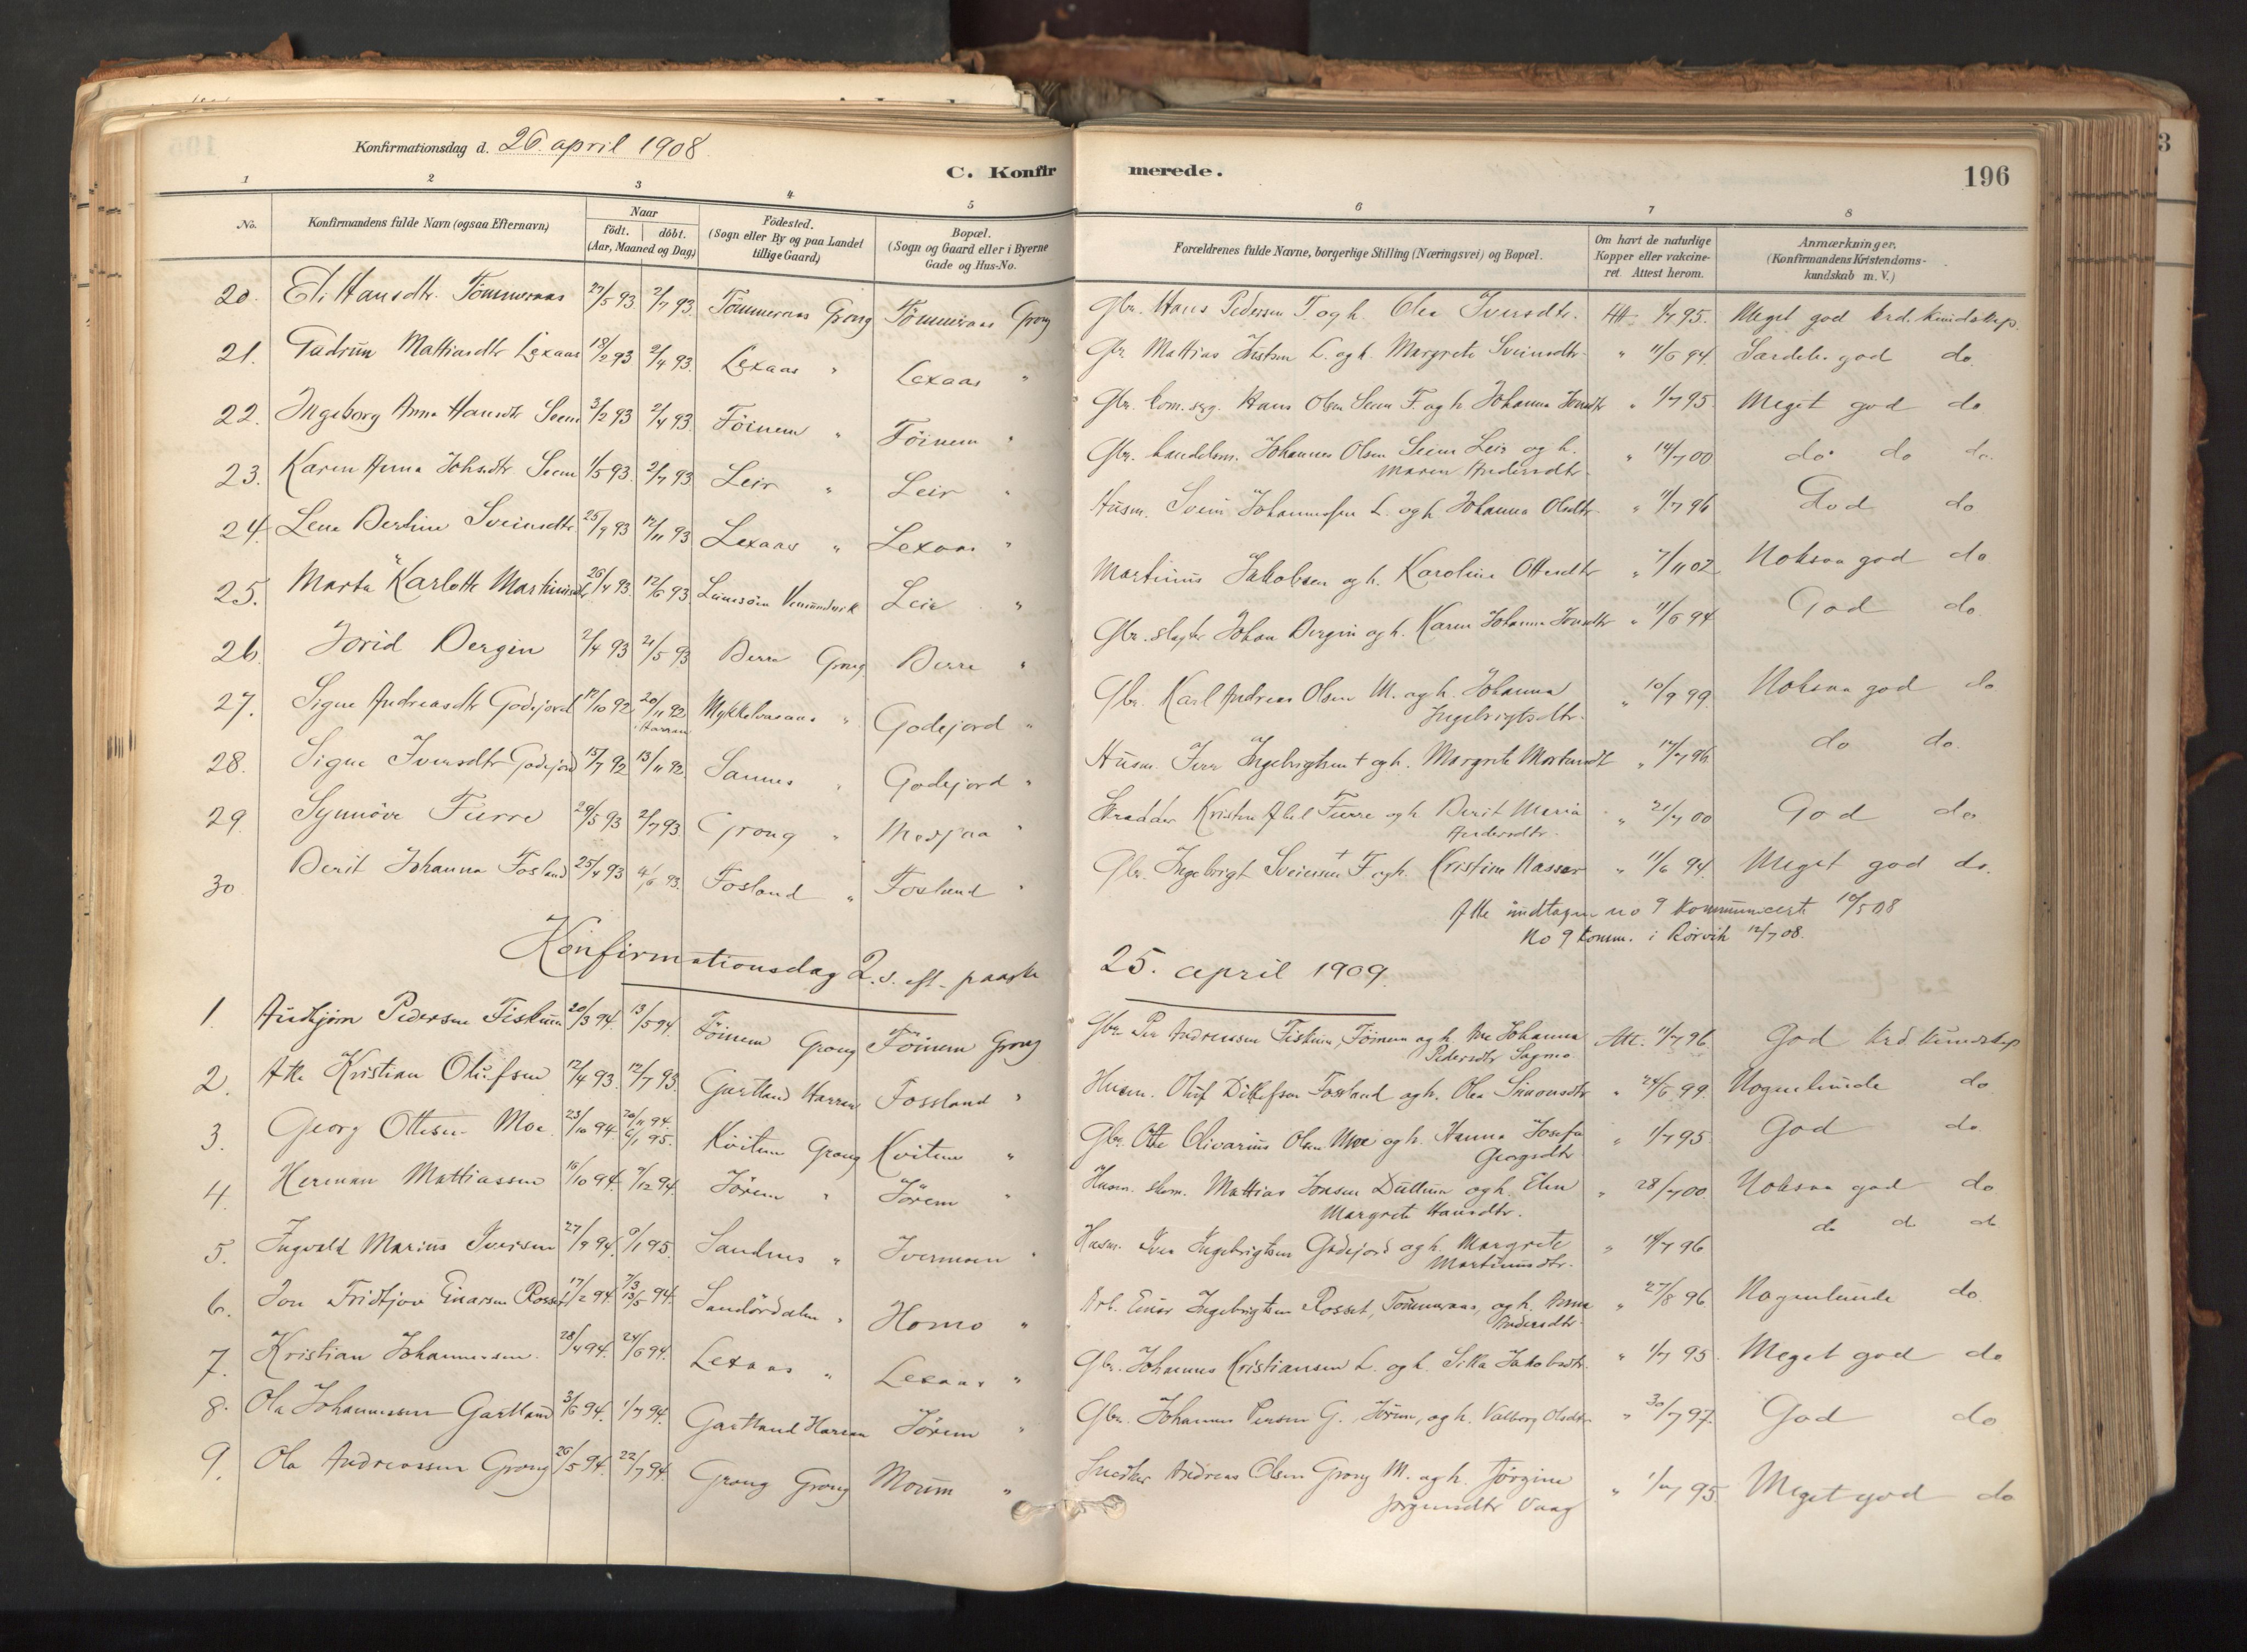 Konfirmationsdag d. 26. april 1908.
C. Konfirmerede.
196
1 2 3 4 5 6 7 8
No. Konfirmandens fulde Navn (ogsaa Efternavn) Naar födt. döbt. (Aar, Maaned og Dag) Födested. (Sogn eller By og paa Landet tillige Gaard) Bopæl. (Sogn og Gaard eller i Byerne Gade og Hus-No. Forældrenes fulde Navne, borgerlige Stilling (Næringsvei) og Bopæl. Om havt de naturlige Kopper eller vakcineret. Attest herom. Anmærkninger. (Konfirmandens Kristendomskundskab m. V.)
20. Eli Hansdtr. Tömmeraas 27/5 93 2/7 93. Tömmeraas Grong Tömmeraas Grong Gbr. Hans Pedersen T. og h. Olea Iversdtr. Att. 1/7 95. Meget god krd. kundskap.
21. Gudrun Mattiasdtr Lexaas 18/2 93 2/4 93. Lexaas " Lexaas " Gbr. Mattias L. og h. Margrete Sveinsdtr. " 11/6 94. Særdeles god do.
22. Ingeborg Anna Hansdtr Seem 3/2 93 2/4 93. Föinem " Föinem " Gbr. Hans Olsen Seem F. og h. Johanna " 1/7 95. Meget god do
23. Karen Anna Johsdtr. Seem 1/5 93. 2/7 93 Leir " Leir " Gbr. handelsm. Johannes Olsen Seem Leir og h. Maren Andersdtr. " 14/7 00 do do do.
24. Lena Bertine Sveinsdtr. 25/9 93 12/11 93 Lexaas " Lexaas " Husm. Svein Johannessen L. og h. Johanna Olsdtr. " 11/7 96 God do
25. Marta Karlotte 26/4 93. 12/6 93. Vemundvik Leir " Martinus Jakobsen og h. Karoline Ottesdtr " 7/11 02. Noksaa god do
26. Jorid Bergin 2/4 93 21/5 93 Berre Grong Berre " Gbr. Johan Bergin og h. Karen Johanna " 11/6 94 God do.
27. Signe Andreasdtr Godejord 17/10 92. 20/11 92 Harran " Godejord " Gbr. Karl Andreas Olsen M. og h. Johanna Ingebrigtsdtr. " 10/9 99. Noksaa god do
28. Signe Iversdtr Godejord 15/7 92 13/11 92. Sannes " Godejord " Husm. Iver Ingebrigtsen + og h. Margrete " 14/7 96. do do.
29. Synnöve Furre 29/5 93 2/7 93 Grong " Medjaa " Skrædder Kristen Abel Furre og h. Berit Maria Andersdtr. " 21/7 00 God do.
30 Berit Johanna Fosland 25/4 93 4/6 93. Fosland " Fosland " Gbr. Ingebrigt Sveinsen + F. og h. Kristine Massar " 11/6 94. Meget god do.
Alle undtagen no 9 kommunicerte 10/5 08
No 9 komm. i Rörvik 12/7 08.
Konfirmationsdag 2. s. eft. paaske 25. april 1909.
1. Pedersen Fiskum 20/3 94. 13/5 94. Föinem Grong Föinem Grong Gbr. Per Andreassen Fiskum, Föinem og h. Johanna Pedersdtr Sagmo Att. 11/7 96. God krd kundskap
2. Atle Kristian Olufsen 12/4 93. 12/7 93. Gartland Harran Fossland " Husm. Oluf Fossland og h. Olea Simonsdtr " 24/6 99. Nogenlunde do.
3. Georg Ottesen Moe 23/10 94. 20/11 94. 6/1 95. Kvitem Grong Kvitem " Gbr. Otte Olivarius Olsen Moe og h. Hanna Josefa Georgsdtr " 1/7 95. God do.
4. Herman Mattiassen 16/10 94. 9/12 94. Jörem " Jörem " Husm. skom. Mattias Jonsen Duttun og h. Elen Margrete Hansdtr. " 28/7 00. Noksaa god do
5. Ingvald Marius Iversen 27/9 94. 9/1 95. Sandnes " " Husm. Iver Ingebrigtsen Godejord og h. Margrete " 14/7 96 do do do
6. Jon Fridtjov Einarsen Rosset 17/2 94. 13/5 94. Sandördalen " Homo " Arb. Einar Ingebrigtsen Rosset, Tömmeraas, og h. Anna Andersdtr. " 27/8 96. Nogenlunde do.
7. Kristian Johannessen. 28/4 94. 24/6 94. Lexaas " Lexaas " Gbr. Johannes Kristiansen L. og h. Jakobsdtr. " 1/7 95. Meget god do
8. Ola Johannessen Gartland 3/6 94. 1/7 94. Gartland Harran Jörem " Gbr. Johannes Persen G. Jörem, og h. Valborg Olsdtr " 30/7 97. God do
9. Ola Andreassen Grong 26/5 94. 22/7 94. Grong Grong Moum " Andreas Olsen Grong M. og h. Jørgine Jørgensdtr Vaag " 1/7 95. Meget god do